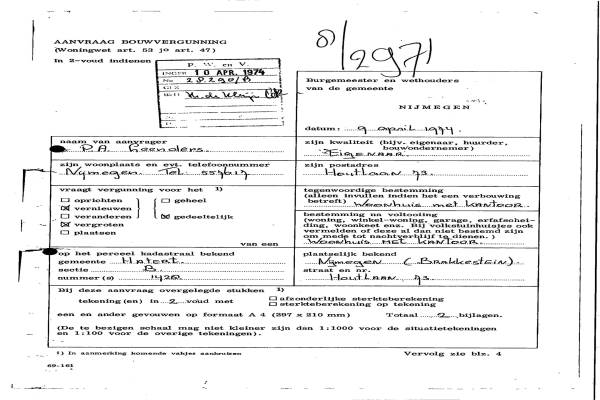 8/2971
AANVRAAG BOUWVERGUNNING
(Woningwet art. 53 jo art. 47)
In 2-voud indienen
P. W. en V.
INGEK 10 APR. 1974
No 28290/B
Burgemeester en wethouders
van de gemeente
NIJMEGEN
datum: 9 april 1974.
naam van aanvrager
P.A. Geenders.
zijn kwaliteit (bijv. eigenaar, huurder, bouwondernemer)
Eigenaar
zijn woonplaats en evt. telefoonnummer
Nijmegen Tel. 557617
zijn postadres
Houtlaan 73.
vraagt vergunning voor het 1)
oprichten
vernieuwen
veranderen
vergroten
plaatsen
geheel
gedeeltelijk
van een
tegenwoordige bestemming
(alleen invullen indien het een verbouwing
betreft) Woonhuis met kantoor.
bestemming na voltooiing
(woning, winkel-woning, garage, erfafschei-
ding, woonkeet enz. Bij volkstuinhuisjes ook
vermelden of deze al dan niet bestemd zijn
om mede tot nachtverblijf te dienen.)
Woonhuis met kantoor.
op het perceel kadastraal bekend
gemeente Hatert
sectie B.
nummer(s)
plaatselijk bekend
Nijmegen (Brakkestein).
straat en nr.
Houtlaan 73.
Bij deze aanvraag overgelegde stukken 1)
tekening(en) in 2 voud met
afzonderlijke sterkteberekening
sterkteberekening op tekening
een en ander gevouwen op formaat A 4 (297 x 210 mm) Totaal 2 bijlagen.
(De te bezigen schaal mag niet kleiner zijn dan 1:1000 voor de situatietekeningen
en 1:100 voor de overige tekeningen).
1) In aanmerking komende vakjes aankruisen
Vervolg zie blz. 4
69.161